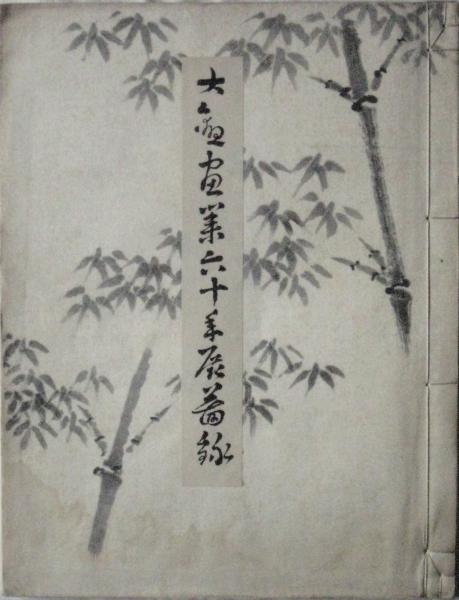 大観画業六十年展図録